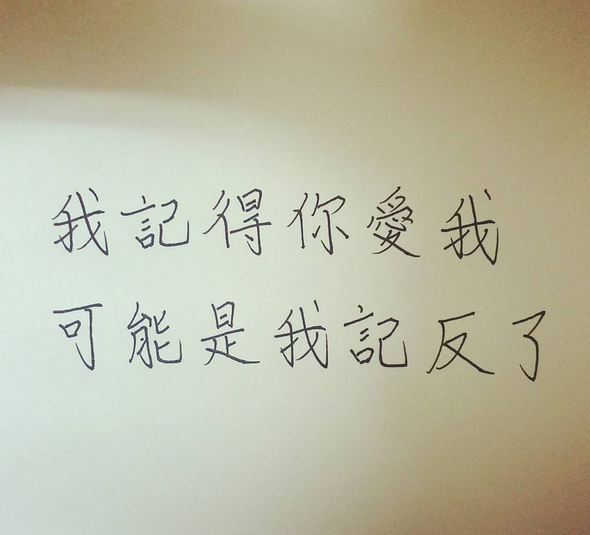 我記得你愛我
可能是我記反了